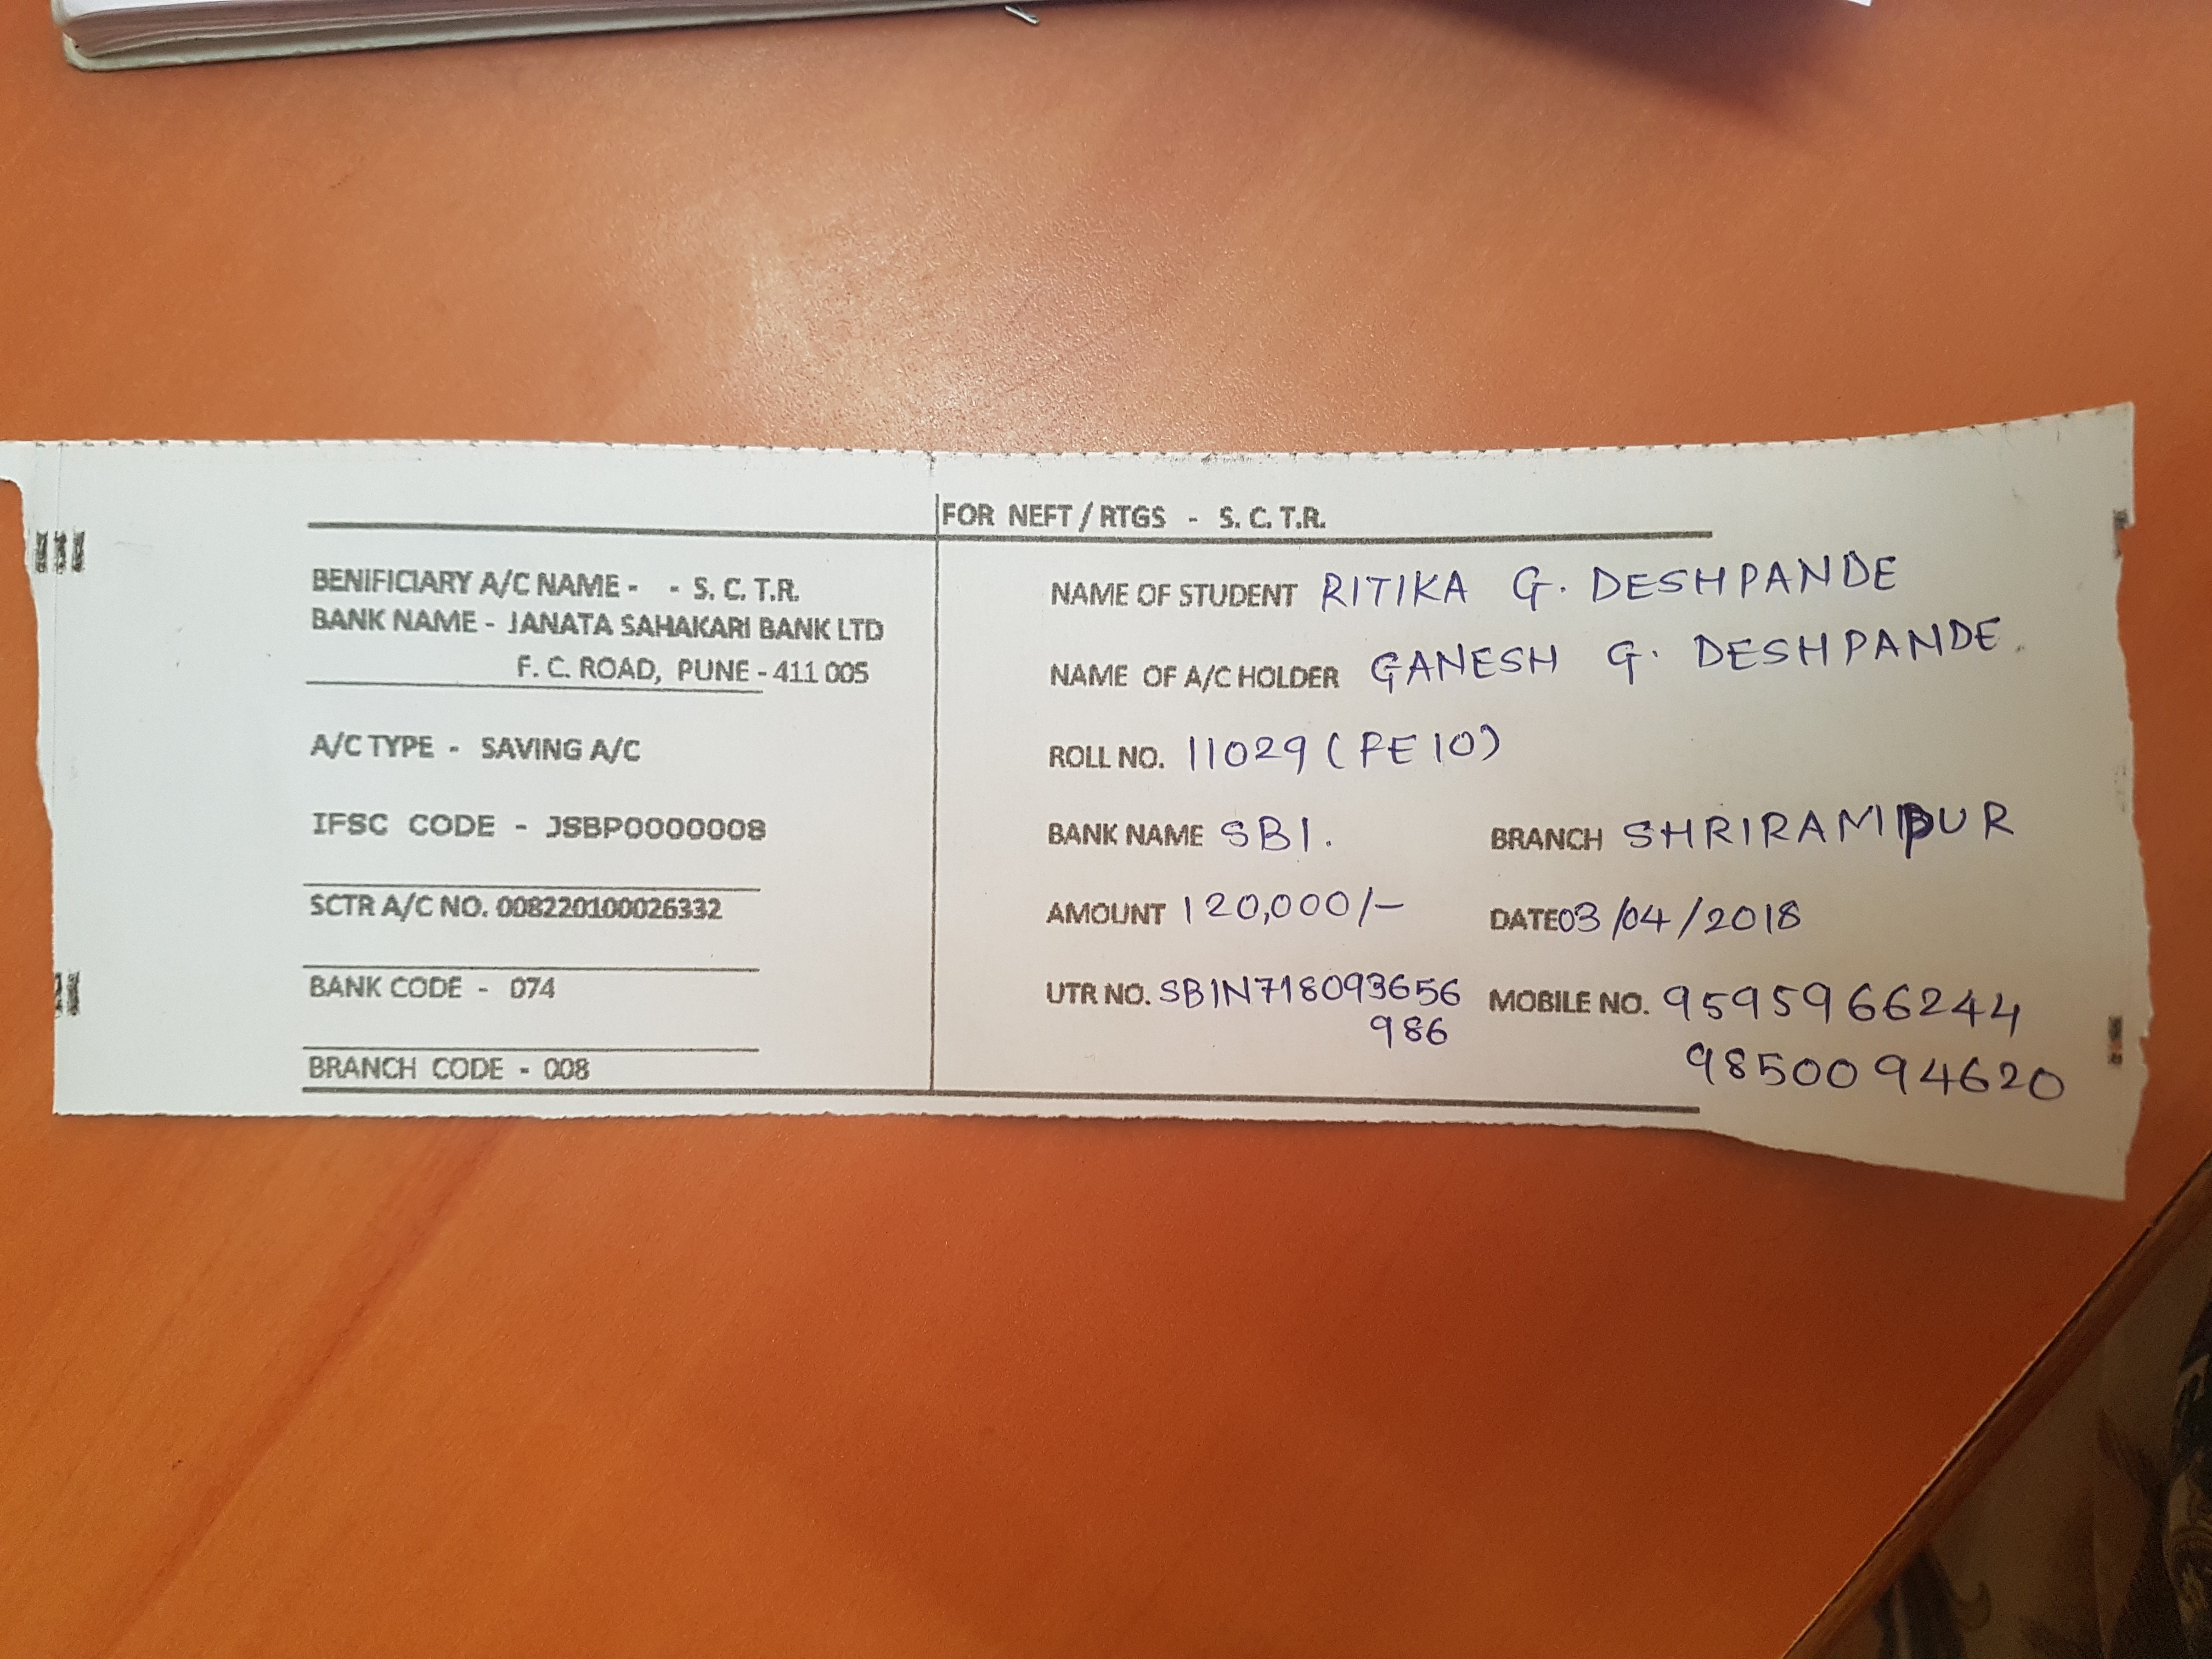 FOR NEFT / RTGS - S. C. T.R.
BENIFICIARY A/C NAME - - S. C. T.R.
BANK NAME - JANATA SAHAKARI BANK LTD
F. C. ROAD, PUNE - 411 005
A/C TYPE - SAVING A/C
IFSC CODE - JSBP0000008
SCTR A/C NO. 008220100026332
BANK CODE - 074
BRANCH CODE - 008
NAME OF STUDENT RITIKA G. DESHPANDE
NAME OF A/C HOLDER GANESH G. DESHPANDE.
ROLL NO. 11029 (PE10)
BANK NAME SBI. BRANCH SHRIRAMPUR
AMOUNT 120,000/- DATE 03/04/2018
UTR NO. SBIN718093656 MOBILE NO. 9595966244
986 9850094620